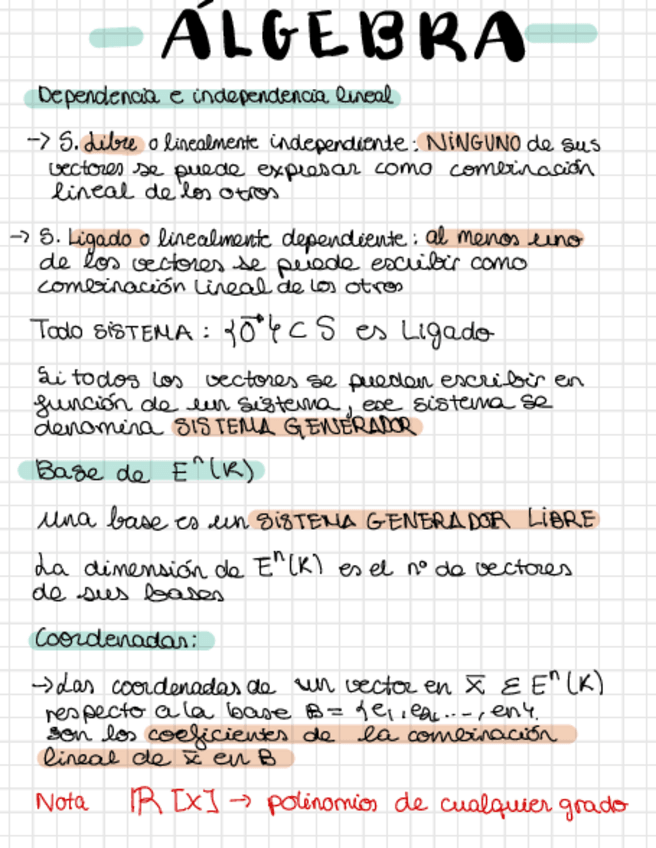 ÁLGEBRA
Dependencia e independencia lineal
-> S. Libre o linealmente independiente: NINGUNO de sus
vectores se puede expresar como combinación
lineal de los otros
-> S. Ligado o linealmente dependiente: al menos uno
de los vectores se puede escribir como
combinación lineal de los otros
Todo SISTEMA: {0⃗} ⊂ S es Ligado
Si todos los vectores se pueden escribir en
función de un sistema, ese sistema se
denomina SISTEMA GENERADOR
Base de Eⁿ(K)
Una base es un SISTEMA GENERADOR LIBRE
La dimensión de Eⁿ(K) es el nº de vectores
de sus bases
Coordenadas:
-> Las coordenadas de un vector en x̄ ε Eⁿ(K)
respecto a la base B = {e₁, e₂, ..., en}.
son los coeficientes de la combinación
lineal de x̄ en B
Nota ℝ[x] → polinomios de cualquier grado